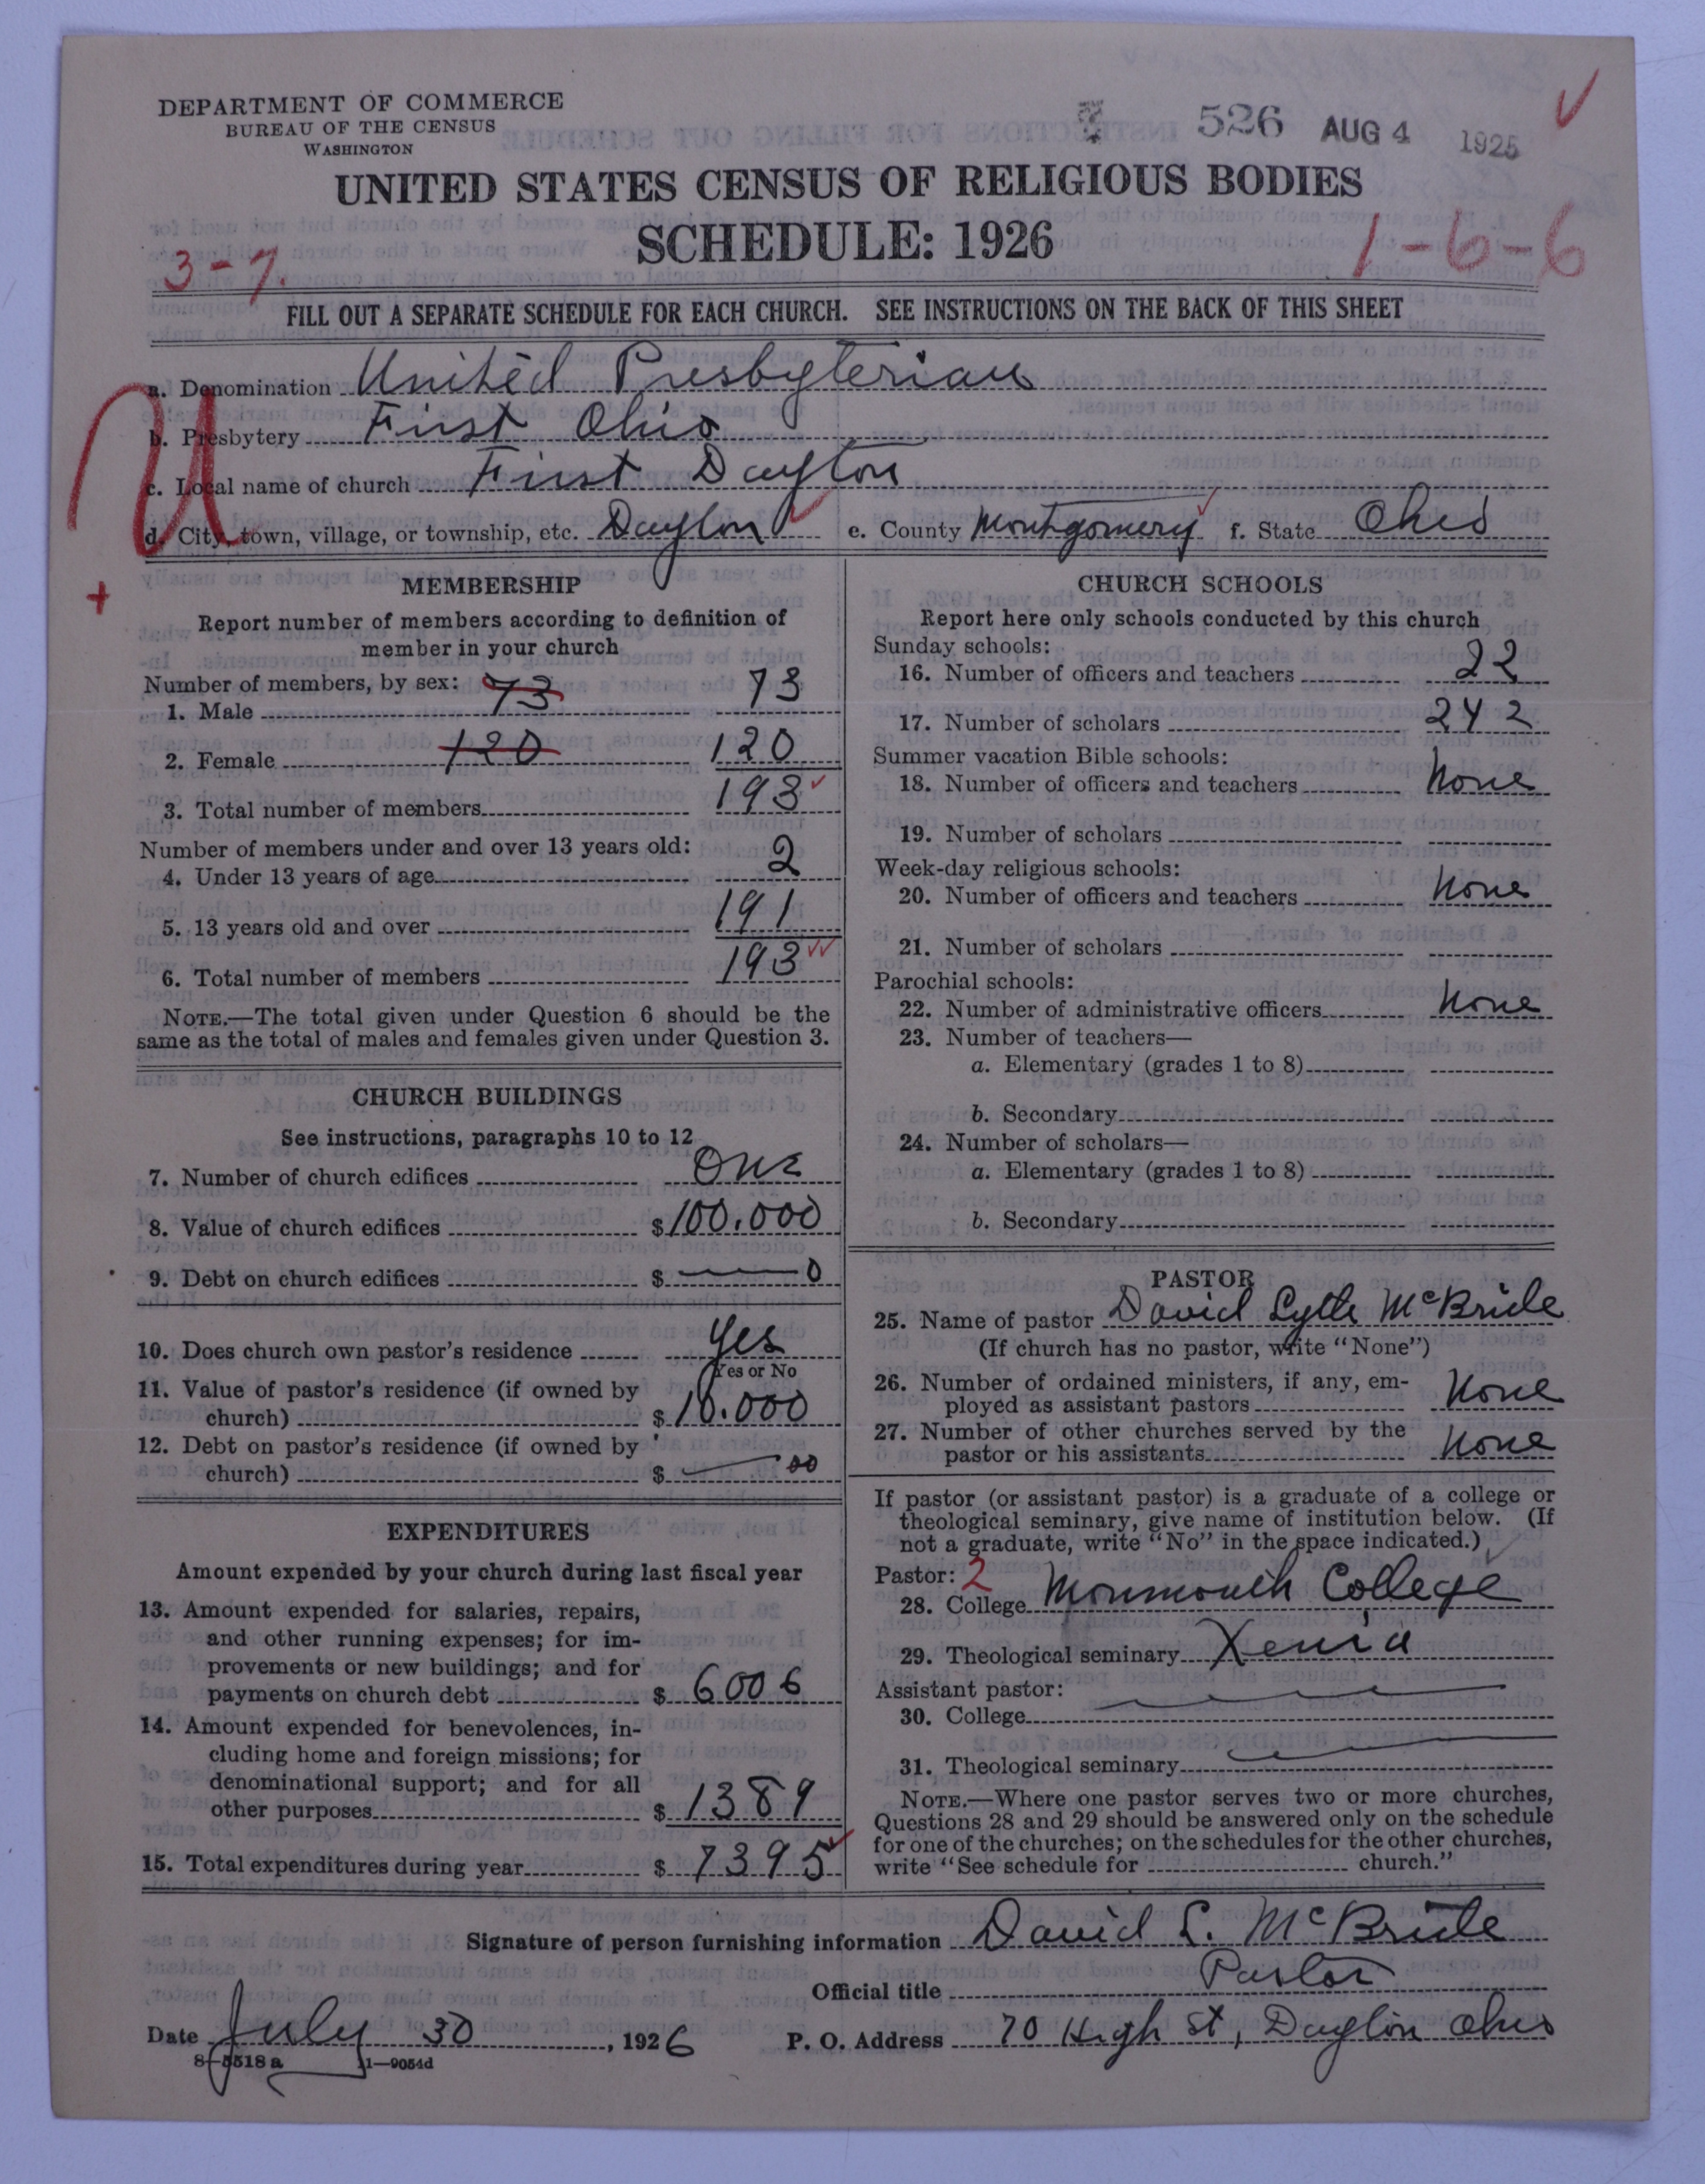 DEPARTMENT OF COMMERCE
BUREAU OF THE CENSUS
WASHINGTON
526 AUG 4 1925
UNITED STATES CENSUS OF RELIGIOUS BODIES
SCHEDULE: 1926
3-7.
1-6-6
FILL OUT A SEPARATE SCHEDULE FOR EACH CHURCH. SEE INSTRUCTIONS ON THE BACK OF THIS SHEET
a. Denomination United Presbyterian
b. Presbytery First Ohio
c. Local name of church First Dayton
d. City, town, village, or township, etc. Dayton e. County Montgomery f. State Ohio
MEMBERSHIP
Report number of members according to definition of
member in your church
Number of members, by sex:
1. Male 73 73
2. Female 120 120
3. Total number of members 193
Number of members under and over 13 years old:
4. Under 13 years of age 2
5. 13 years old and over 191
6. Total number of members 193
NOTE.—The total given under Question 6 should be the
same as the total of males and females given under Question 3.
CHURCH BUILDINGS
See instructions, paragraphs 10 to 12
7. Number of church edifices One
8. Value of church edifices $100.000
9. Debt on church edifices $ 0
10. Does church own pastor's residence Yes
Yes or No
11. Value of pastor's residence (if owned by
church) $10.000
12. Debt on pastor's residence (if owned by
church) $ 00
EXPENDITURES
Amount expended by your church during last fiscal year
13. Amount expended for salaries, repairs,
and other running expenses; for im-
provements or new buildings; and for
payments on church debt $ 6006
14. Amount expended for benevolences, in-
cluding home and foreign missions; for
denominational support; and for all
other purposes $ 1389
15. Total expenditures during year $ 7395
CHURCH SCHOOLS
Report here only schools conducted by this church
Sunday schools:
16. Number of officers and teachers 22
17. Number of scholars 242
Summer vacation Bible schools:
18. Number of officers and teachers None
19. Number of scholars
Week-day religious schools:
20. Number of officers and teachers None
21. Number of scholars
Parochial schools:
22. Number of administrative officers None
23. Number of teachers—
a. Elementary (grades 1 to 8)
b. Secondary
24. Number of scholars—
a. Elementary (grades 1 to 8)
b. Secondary
PASTOR
25. Name of pastor David Lytle McBride
(If church has no pastor, write "None")
26. Number of ordained ministers, if any, em-
ployed as assistant pastors None
27. Number of other churches served by the
pastor or his assistants None
If pastor (or assistant pastor) is a graduate of a college or
theological seminary, give name of institution below. (If
not a graduate, write "No" in the space indicated.)
Pastor: 2
28. College Monmouth College
29. Theological seminary Xenia
Assistant pastor:
30. College
31. Theological seminary
NOTE.—Where one pastor serves two or more churches,
Questions 28 and 29 should be answered only on the schedule
for one of the churches; on the schedules for the other churches,
write "See schedule for church."
Signature of person furnishing information David L. McBride
Official title Pastor
Date July 30, 1926 P. O. Address 70 High St, Dayton Ohio
8-5518 a 1-9054d